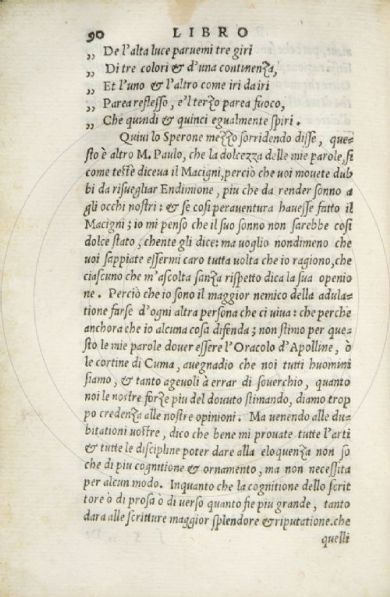 90 LIBRO
„ De l'alta luce paruemi tre giri
„ Di tre colori & d'una continenza,
„ Et l'uno & l'altro come iri da iri
„ Parea reflesso, e'l terzo parea fuoco,
„ Che quindi & quinci egualmente spiri.
Quiui lo Sperone mezzo sorridendo disse, que-
sto è altro M. Paulo, che la dolcezza delle mie parole, si
come testè diceua il Macigni, perciò che voi mouete dub
bi da risuegliar Endimione, piu che da render sonno a
gli occhi nostri: & se cosi perauentura hauesse fatto il
Macigni; io mi penso che il suo sonno non sarebbe cosi
dolce stato, chente gli dice: ma uoglio nondimeno che
uoi sappiate essermi caro tutta volta che io ragiono, che
ciascuno che m'ascolta sanza rispetto dica la sua openio
ne. Perciò che io sono il maggior nemico della adula-
tione furse d'ogni altra persona che ci uiua: che perche
anchora che io alcuna cosa difenda; non stimo per que-
sto le mie parole douer essere l'Oracolo d'Apolline, ò
le cortine di Cuma, auegnadio che noi tutti huomini
siamo, & tanto ageuoli à errar di souerchio, quanto
noi le nostre forze piu del douuto stimando, diamo trop
po credenza alle nostre opinioni. Ma uenendo alle du-
bitationi uostre, dico che bene mi prouate tutte l'arti
& tutte le discipline poter dare alla eloquenza non so
che di piu cognitione & ornamento, ma non necessita
per alcun modo. Inquanto che la cognitione dello scrit
tore ò di prosa ò di uerso quanto fie piu grande, tanto
dara alle scritture maggior splendore & riputatione. che
quelli